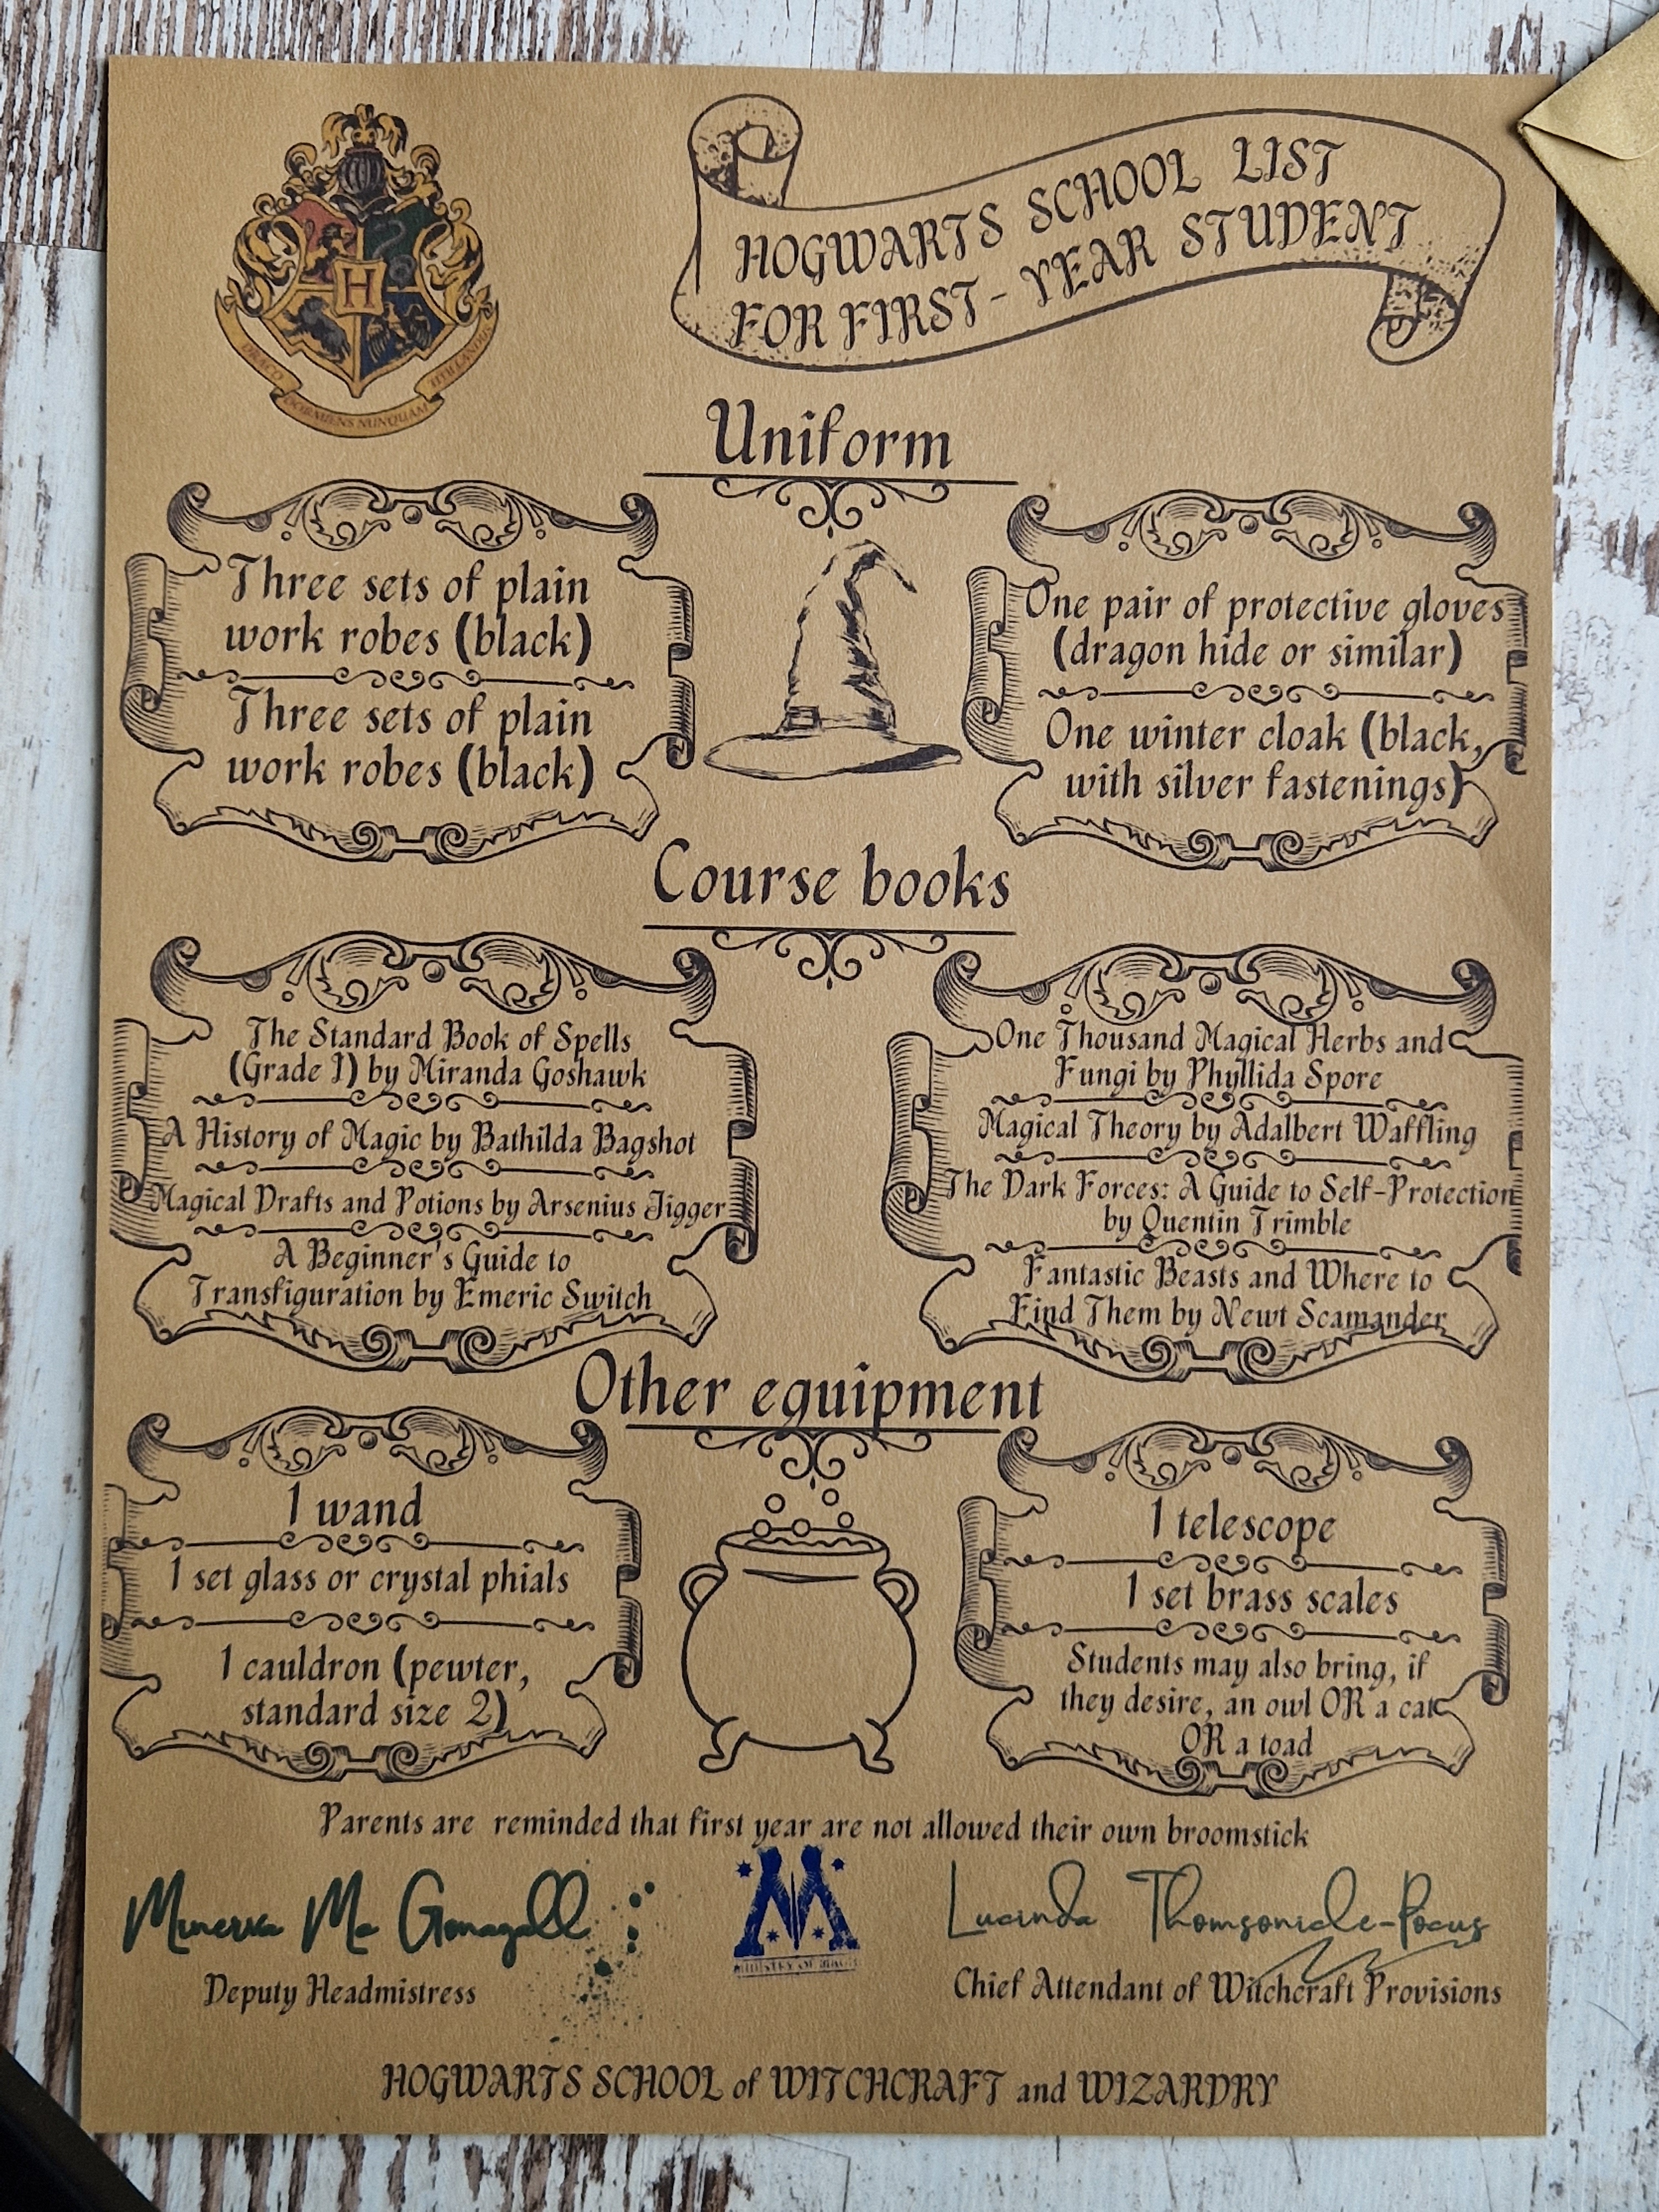 HOGWARTS SCHOOL LIST
FOR FIRST-YEAR STUDENT
H
DRACO
DORMIENS NUNQUAM
TITILLANDUS
Uniform
Three sets of plain
work robes (black)
Three sets of plain
work robes (black)
One pair of protective gloves
(dragon hide or similar)
One winter cloak (black,
with silver fastenings)
Course books
The Standard Book of Spells
(Grade 1) by Miranda Goshawk
A History of Magic by Bathilda Bagshot
Magical Drafts and Potions by Arsenius Jigger
A Beginner's Guide to
Transfiguration by Emeric Switch
One Thousand Magical Herbs and
Fungi by Phyllida Spore
Magical Theory by Adalbert Waffling
The Dark Forces: A Guide to Self-Protection
by Quentin Trimble
Fantastic Beasts and Where to
Find Them by Newt Scamander
Other equipment
1 wand
1 set glass or crystal phials
1 cauldron (pewter,
standard size 2)
1 telescope
1 set brass scales
Students may also bring, if
they desire, an owl OR a cat
OR a toad
Parents are reminded that first year are not allowed their own broomstick
Minerva Mc Gonagall
Deputy Headmistress
M
MINISTRY OF MAGIC
Lucinda Thomsonicle-Pocus
Chief Attendant of Witchcraft Provisions
HOGWARTS SCHOOL of WITCHCRAFT and WIZARDRY